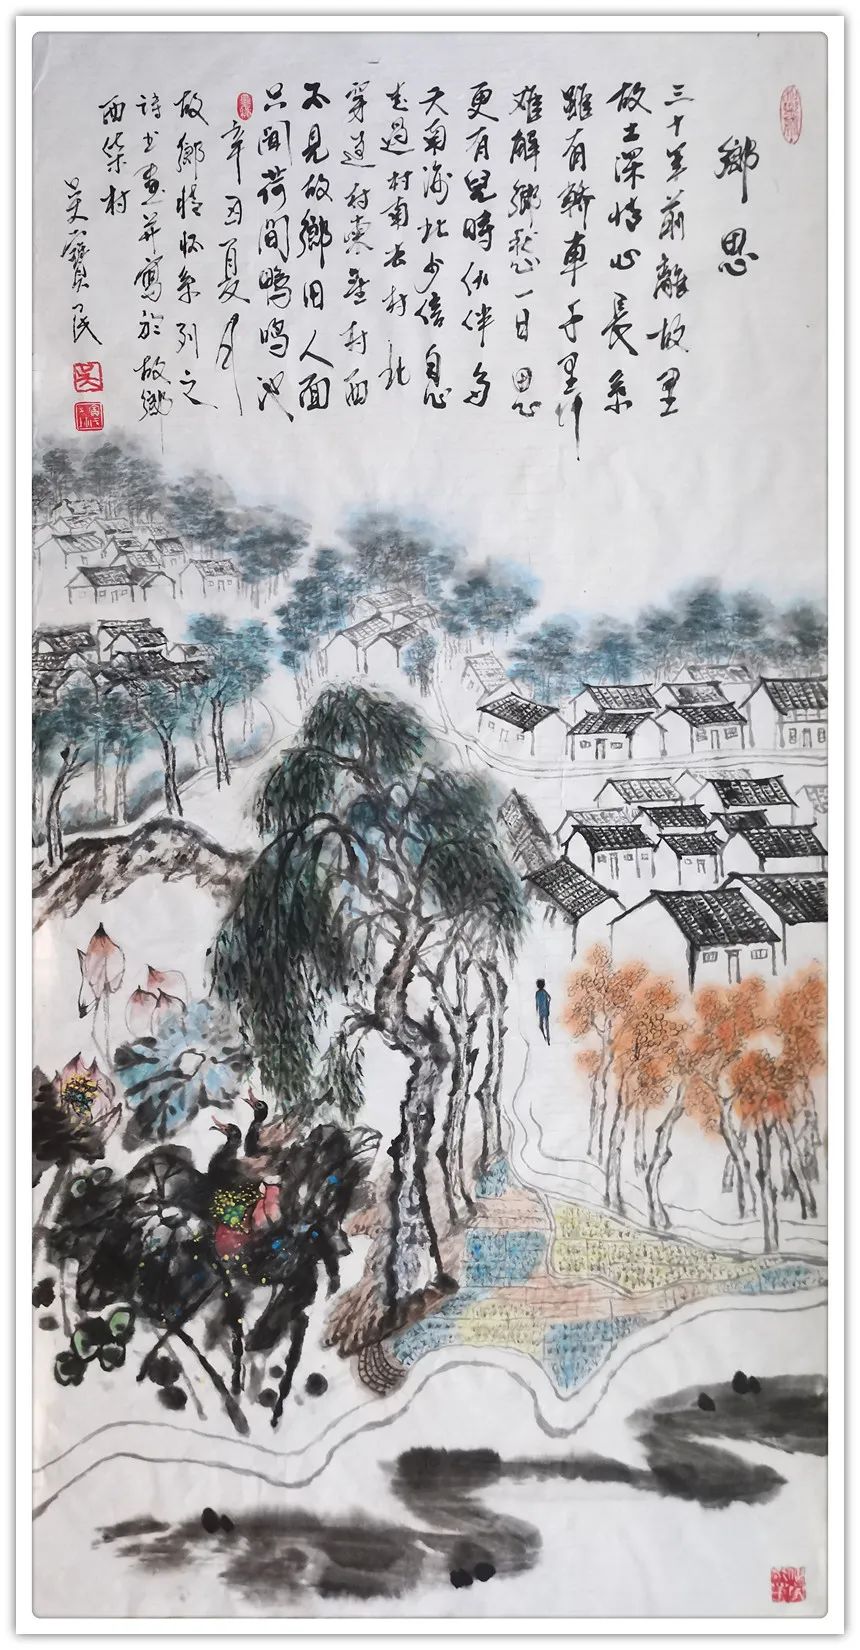 鄉思
三十年前離故里
故土深情心長系
雖有轎車千里行
难解鄉愁一日思
更有兒時伙伴多
天南海北少信息
走過村南去村北
穿過村東村西
不見故鄉旧人面
只闻荷間鴨鳴池
辛丑夏月
故鄉情怀系列之
詩书画并寫於故鄉
西柴村
吴寶民
吴